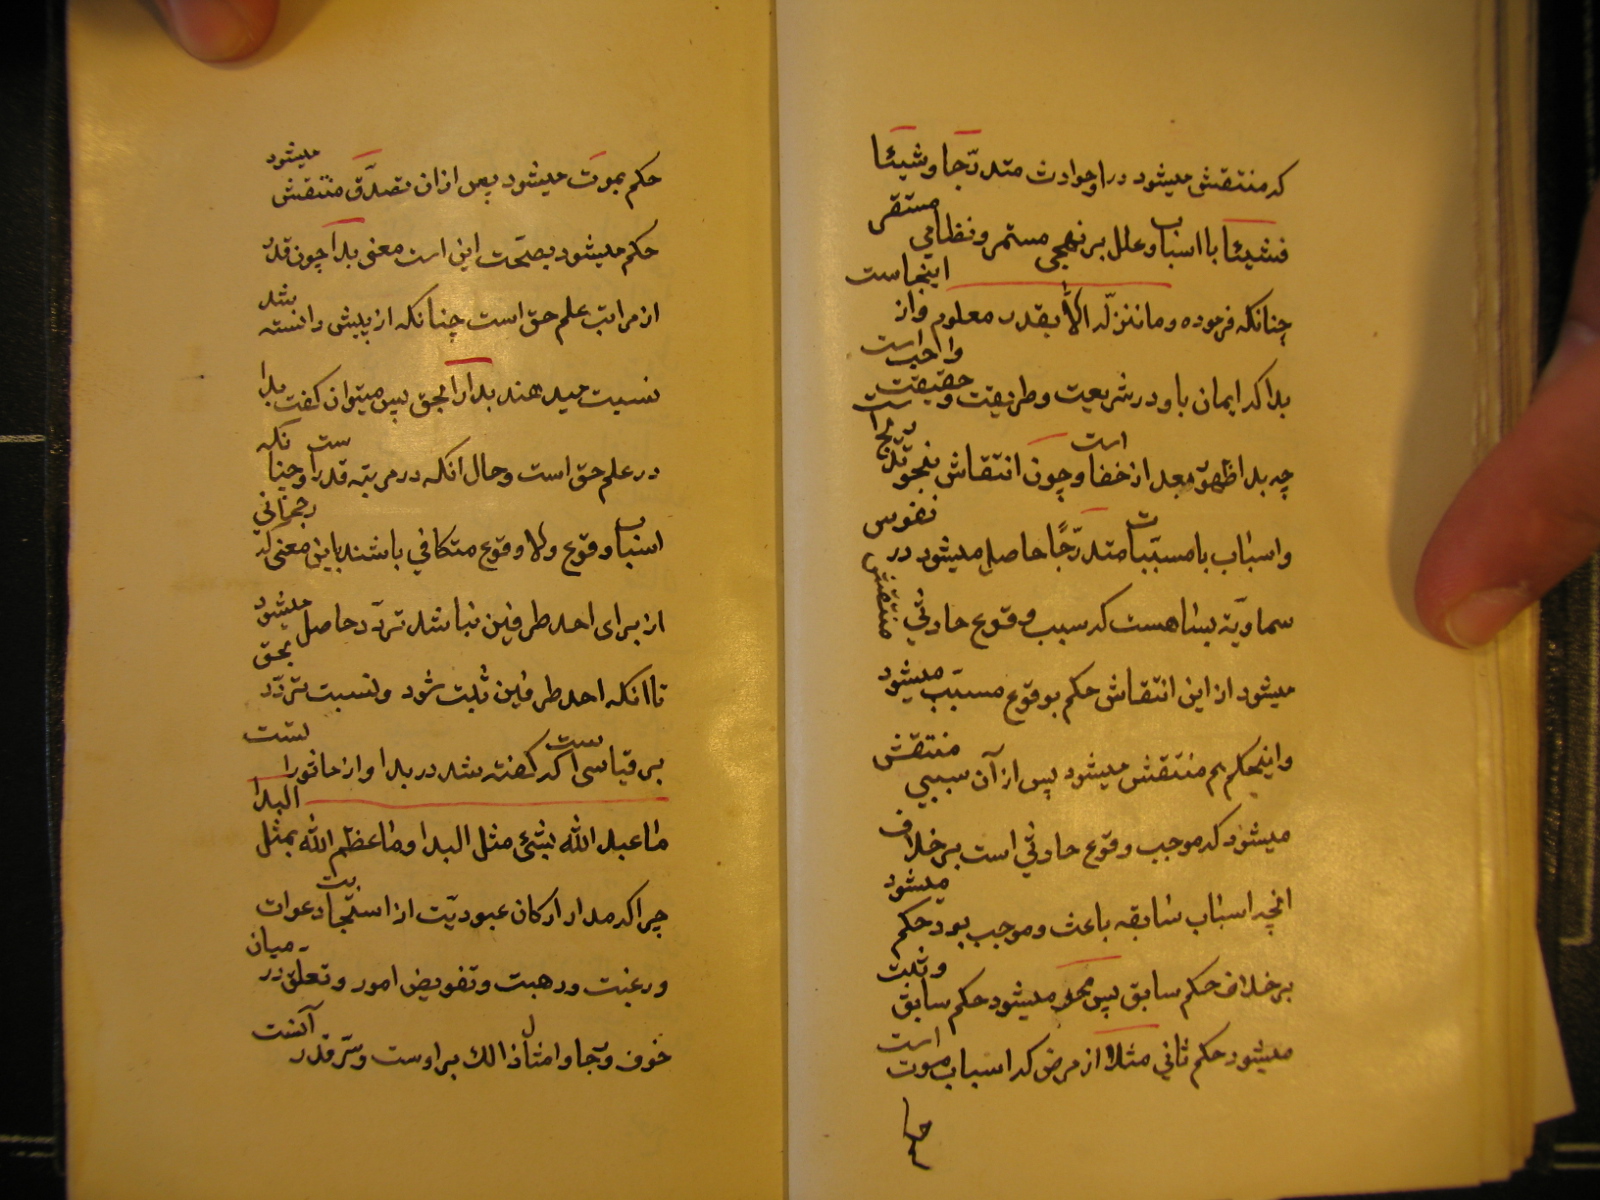 که منتقش میشود در او حوادث متدرّجا و شیئا
فشیئا با اسباب و علل بر نهجی مستمر و نظامی مستقر
چنانکه فرموده و ما ننزّله الّا بقدر معلوم و از اینجاست
بدا که ایمان باو در شریعت و طریقت و حقیقت واجب است
چه بدا ظهور بعد از خفا است و چون انتقاش بنحو تدریج است
و اسباب با مسبّبات متدرّجًا حاصل میشود در نفوس
سماویّه بسا هست که سبب وقوع حادثی منتقش
میشود از این انتقاش حکم بوقوع مسبّب میشود
و اینحکم هم منتقش میشود پس از آن سببی منتقش
میشود که موجب وقوع حادثی است بر خلاف
انچه اسباب سابقه باعث و موجب بود حکم میشود
بر خلاف حکم سابق پس محو میشود حکم سابق و ثابت
میشود حکم ثانی مثلا از مرض که اسباب موت است
حکم
حکم بموت میشود پس از ان تصدّق منتقش میشود
حکم میشود بصحّت این است معنی بدا چون قدر
از مراتب علم حق است چنانکه از پیش دانسته شد
نسبت میدهند بدا را بحق پس میتوان کفت بدا
در علم حق است و حال انکه در مرتبه قدر است و چنانکه
اسباب وقوع و لا وقوع متکافی باشند باین معنی که رجحانی
از برای احد طرفین نباشد تردّد حاصل میشود
تا انکه احد طرفین ثابت شود و نسبت تردّد بحق
بر قیاسی است که کفته شد در بدا و از ماثورات است
ما عبد الله بشئ مثل البدا و ما عظم الله بمثل البدا
چرا که مدار ارکان عبودیّت از استجابت دعوات
و رغبت و رهبت و تفویض امور و تعلق در میان
خوف و رجا و امثال ذالك بر اوست و سّر قدر آنست